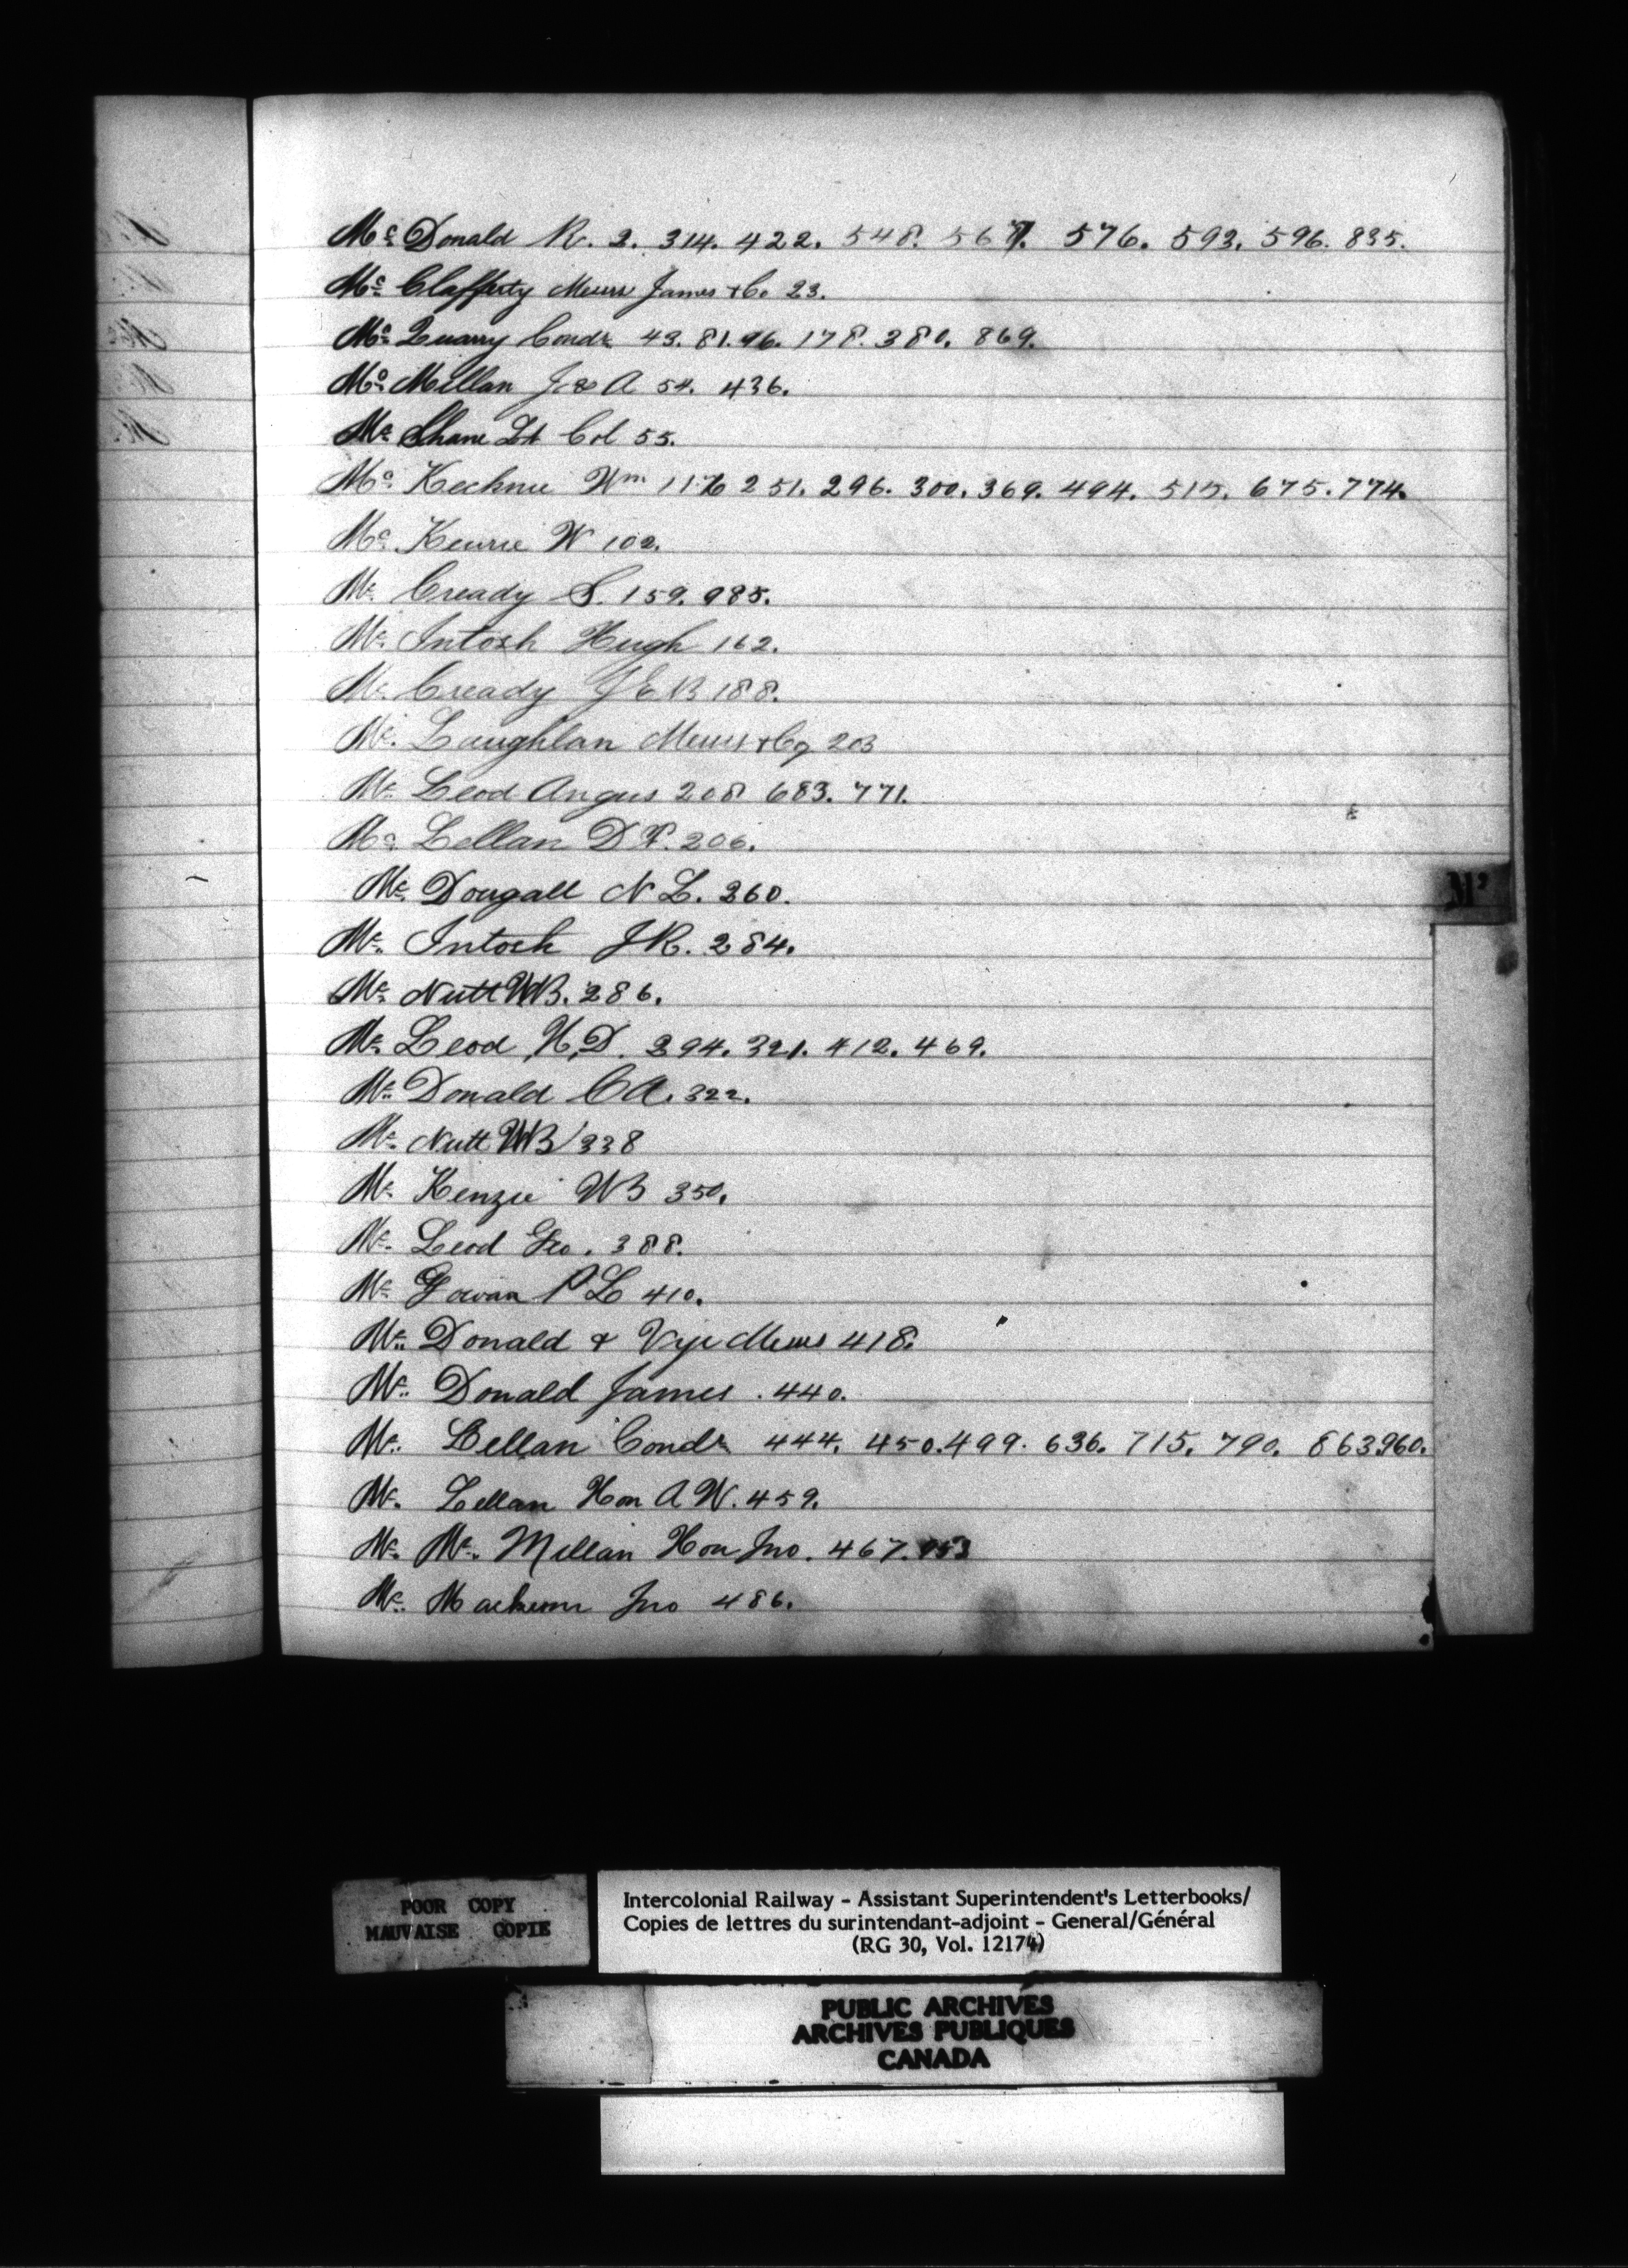 Mc Donald R. 2. 314. 422. 548. 567. 576. 593. 596. 835.
Mc Clafferty Messrs James & Co 23.
Mc Quarry Condr 43. 81. 96. 178. 380. 869.
Mc Millan J & A 54. 436.
Mc Shane Lt Col 55.
Mc Kechnie Wm 116 251. 296. 300. 369. 494. 515. 675. 774.
Mc W 102.
Mc Cready S. 159. 985.
Mc Intosh Hugh 162.
Mc Cready J E B 188.
Mc Laughlan Messrs & Co 203
Mc Leod Angus 208 683. 771.
Mc Lellan D 206.
Mc Dougall N L. 260.
Mc Intosh J R. 284.
Mc Nutt WB. 286.
Mc Leod H, D. 294. 321. 412. 469.
Mc Donald C A. 322.
Mc Nutt WB 338
Mc Kenzie WB 350.
Mc Leod Geo. 388.
Mc Gowan P L 410.
Mc Donald & Vye Messrs 418.
Mc Donald James. 440.
Mc Lellan Condr 444. 450. 499. 636. 715. 790. 863. 960.
Mc Lellan Hon A W. 459.
Mc Mc Millan Hon Jno. 467.
Mc Jno 486.
Mc
POOR COPY
MAUVAISE COPIE
Intercolonial Railway - Assistant Superintendent's Letterbooks/
Copies de lettres du surintendant-adjoint - General/Général
(RG 30, Vol. 12174)
PUBLIC ARCHIVES
ARCHIVES PUBLIQUES
CANADA